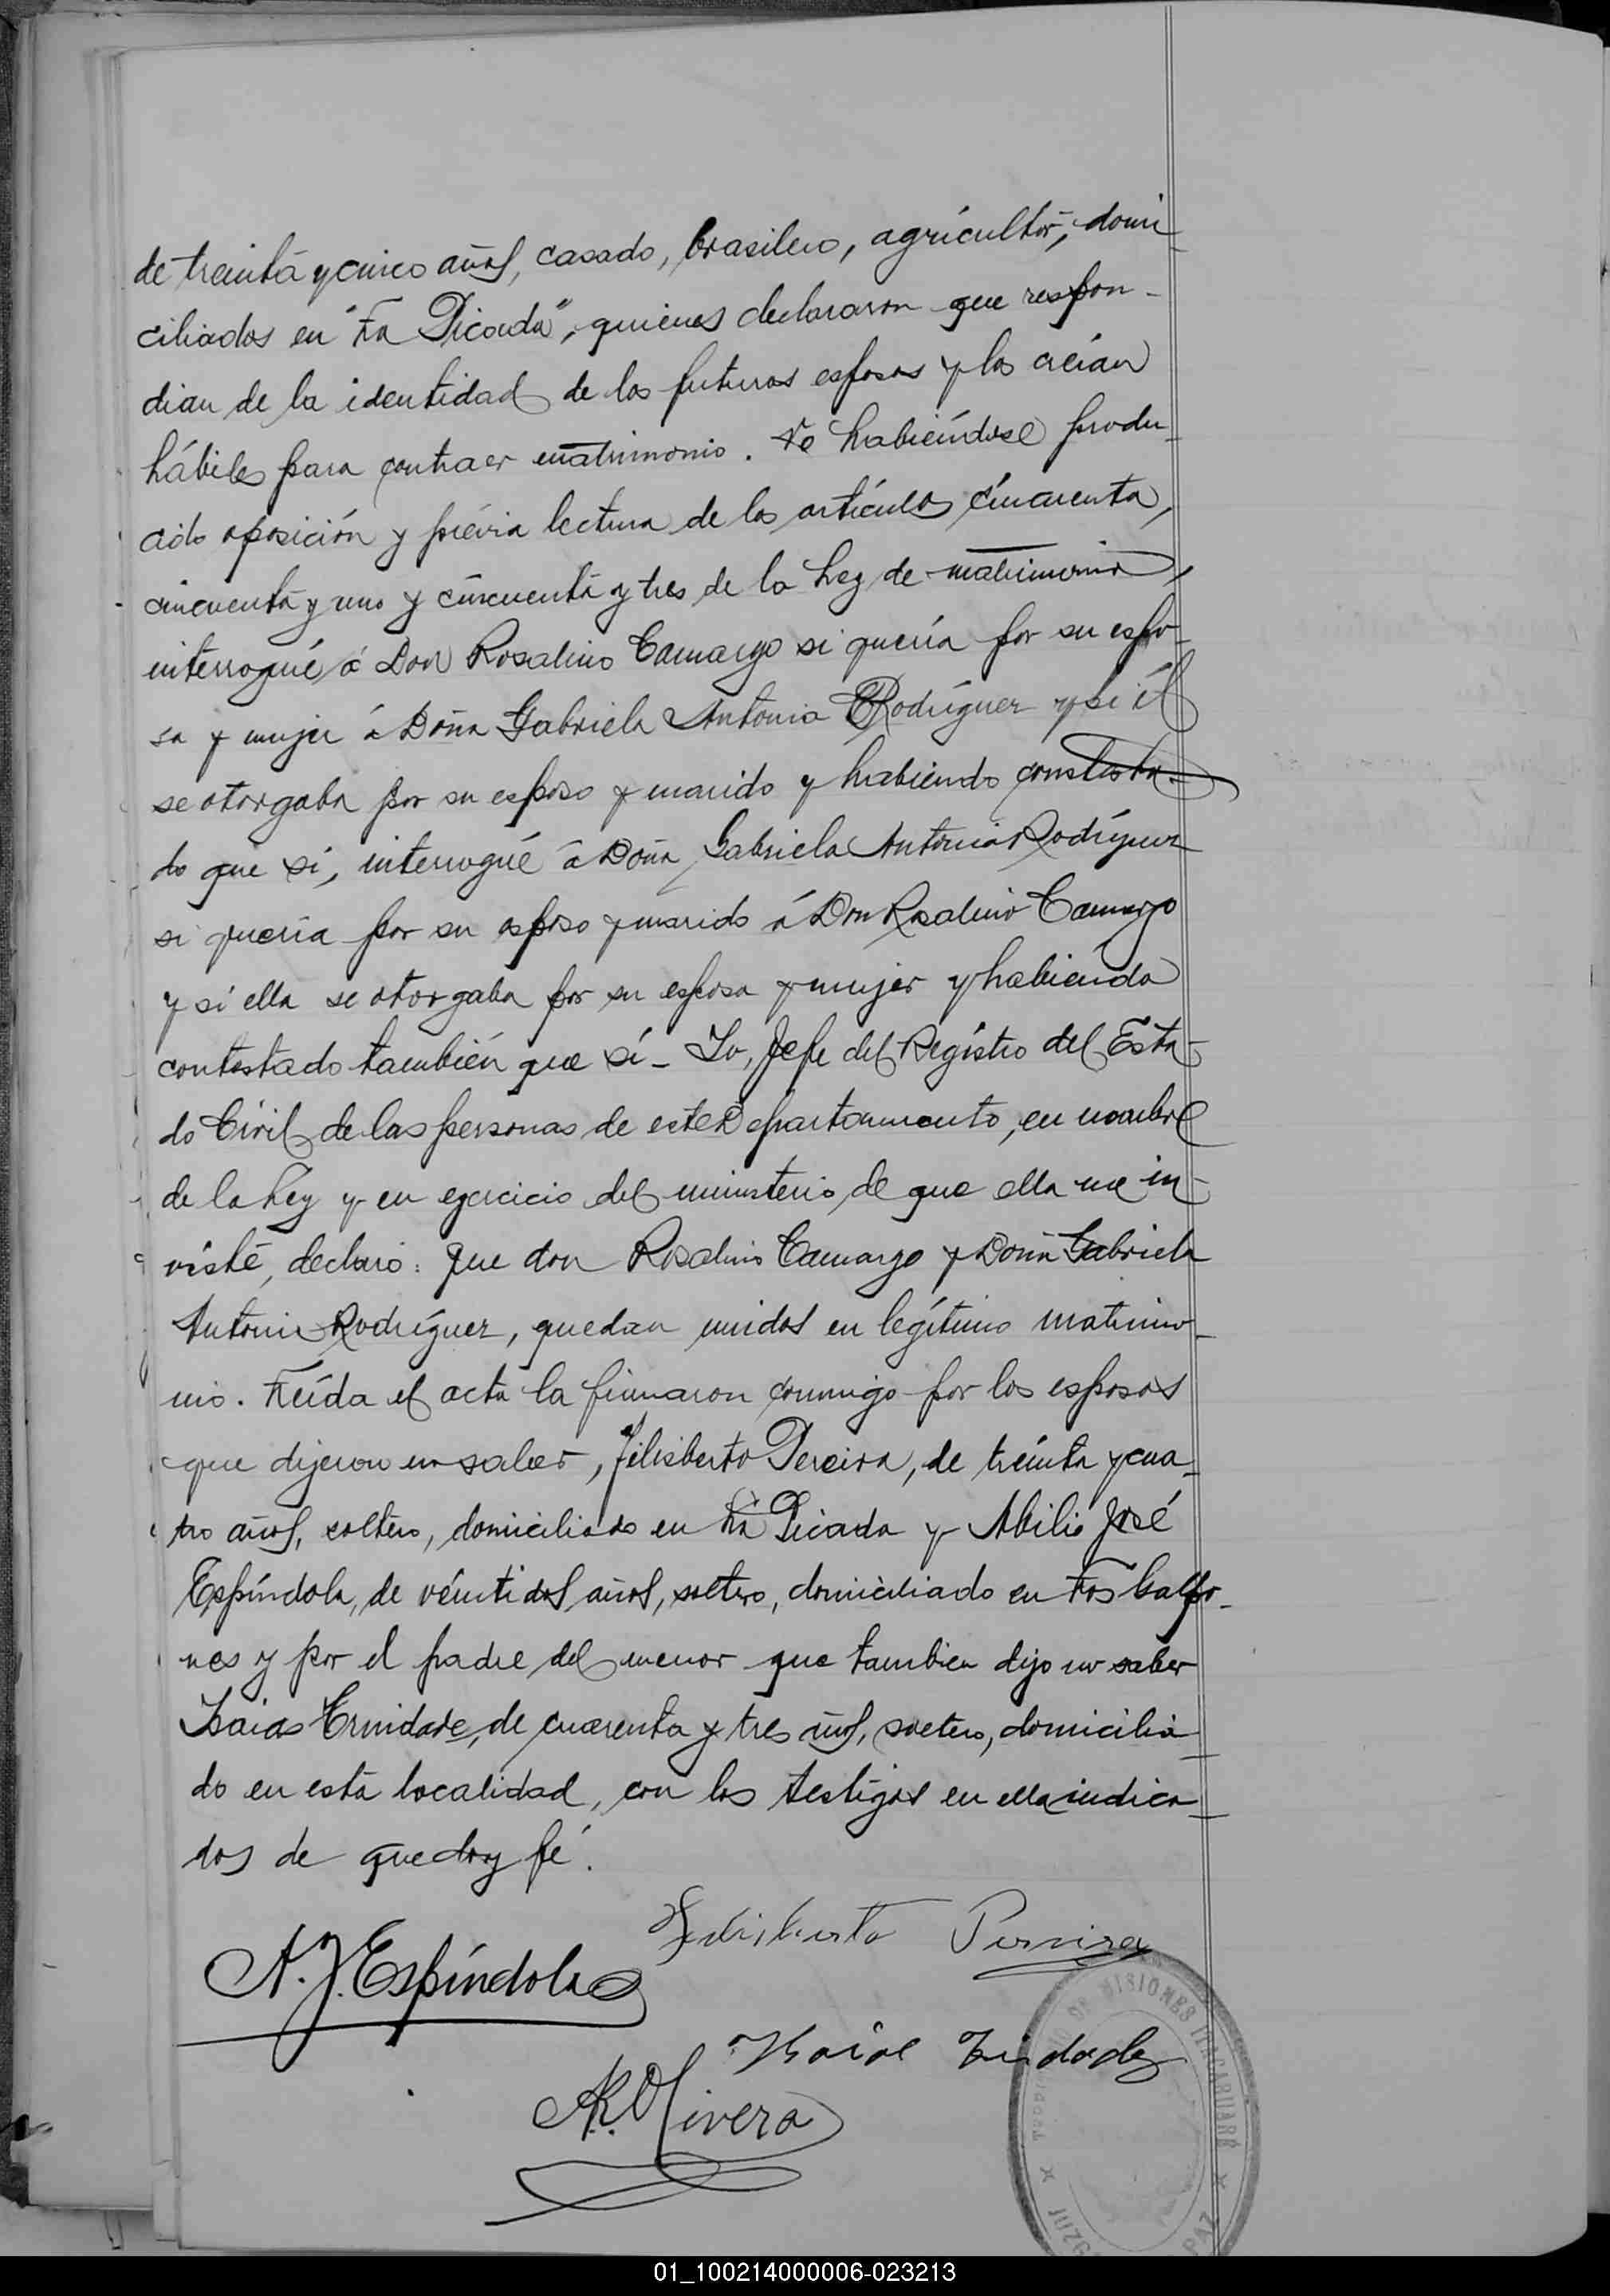 de treinta y cinco años, casado, brasilero, agricultor, domi
ciliados en "La Picada", quienes declararon que respon-
dian de la identidad de los futuros esposos y los creían
hábiles para contraer matrimonio. No habiéndose produ-
cido oposición y prévia lectura de los artículos cincuenta,
cincuenta y uno y cincuenta y tres de la Ley de matrimonio,
interrogué á Don Rosalino Camargo si quería por su espo-
sa y mujer á Doña Gabriela Antonia Rodríguez y si él
se otorgaba por su esposo y marido y habiendo contesta-
do que sí, interrogué á Doña Gabriela Antonia Rodríguez
si quería por su esposo y marido á Don Rosalino Camargo
y si ella se otorgaba por su esposa y mujer y habiendo
contestado también que sí- Yo, Jefe del Registro del Esta-
do Civil de las personas de este Departamento, en nombre
de la Ley y en ejercicio del ministerio de que ella me in-
viste, declaro: que don Rosalino Camargo y Doña Gabriela
Antonia Rodríguez, quedan unidos en legítimo matrimo-
nio. Leída el acta la firmaron conmigo por los esposos
que dijeron no saber, Felisberto Pereira, de treinta y cua-
tro años, soltero, domiciliado en La Picada y Abilio José
Espíndola, de veintidos años, soltero, domiciliado en Los Galpo-
nes y por el padre del menor que tambien dijo no saber
Isaias Trindade, de cuarenta y tres años, soltero, domicilia-
do en esta localidad, con los testigos en ella indica-
dos de que doy fé.
Felisberto Pereira
A. J. Espíndola
Isaias Trindade
A. R. Olivera
DE MISIONES ITACARUARÉ
JUZG PAZ
01_100214000006-023213